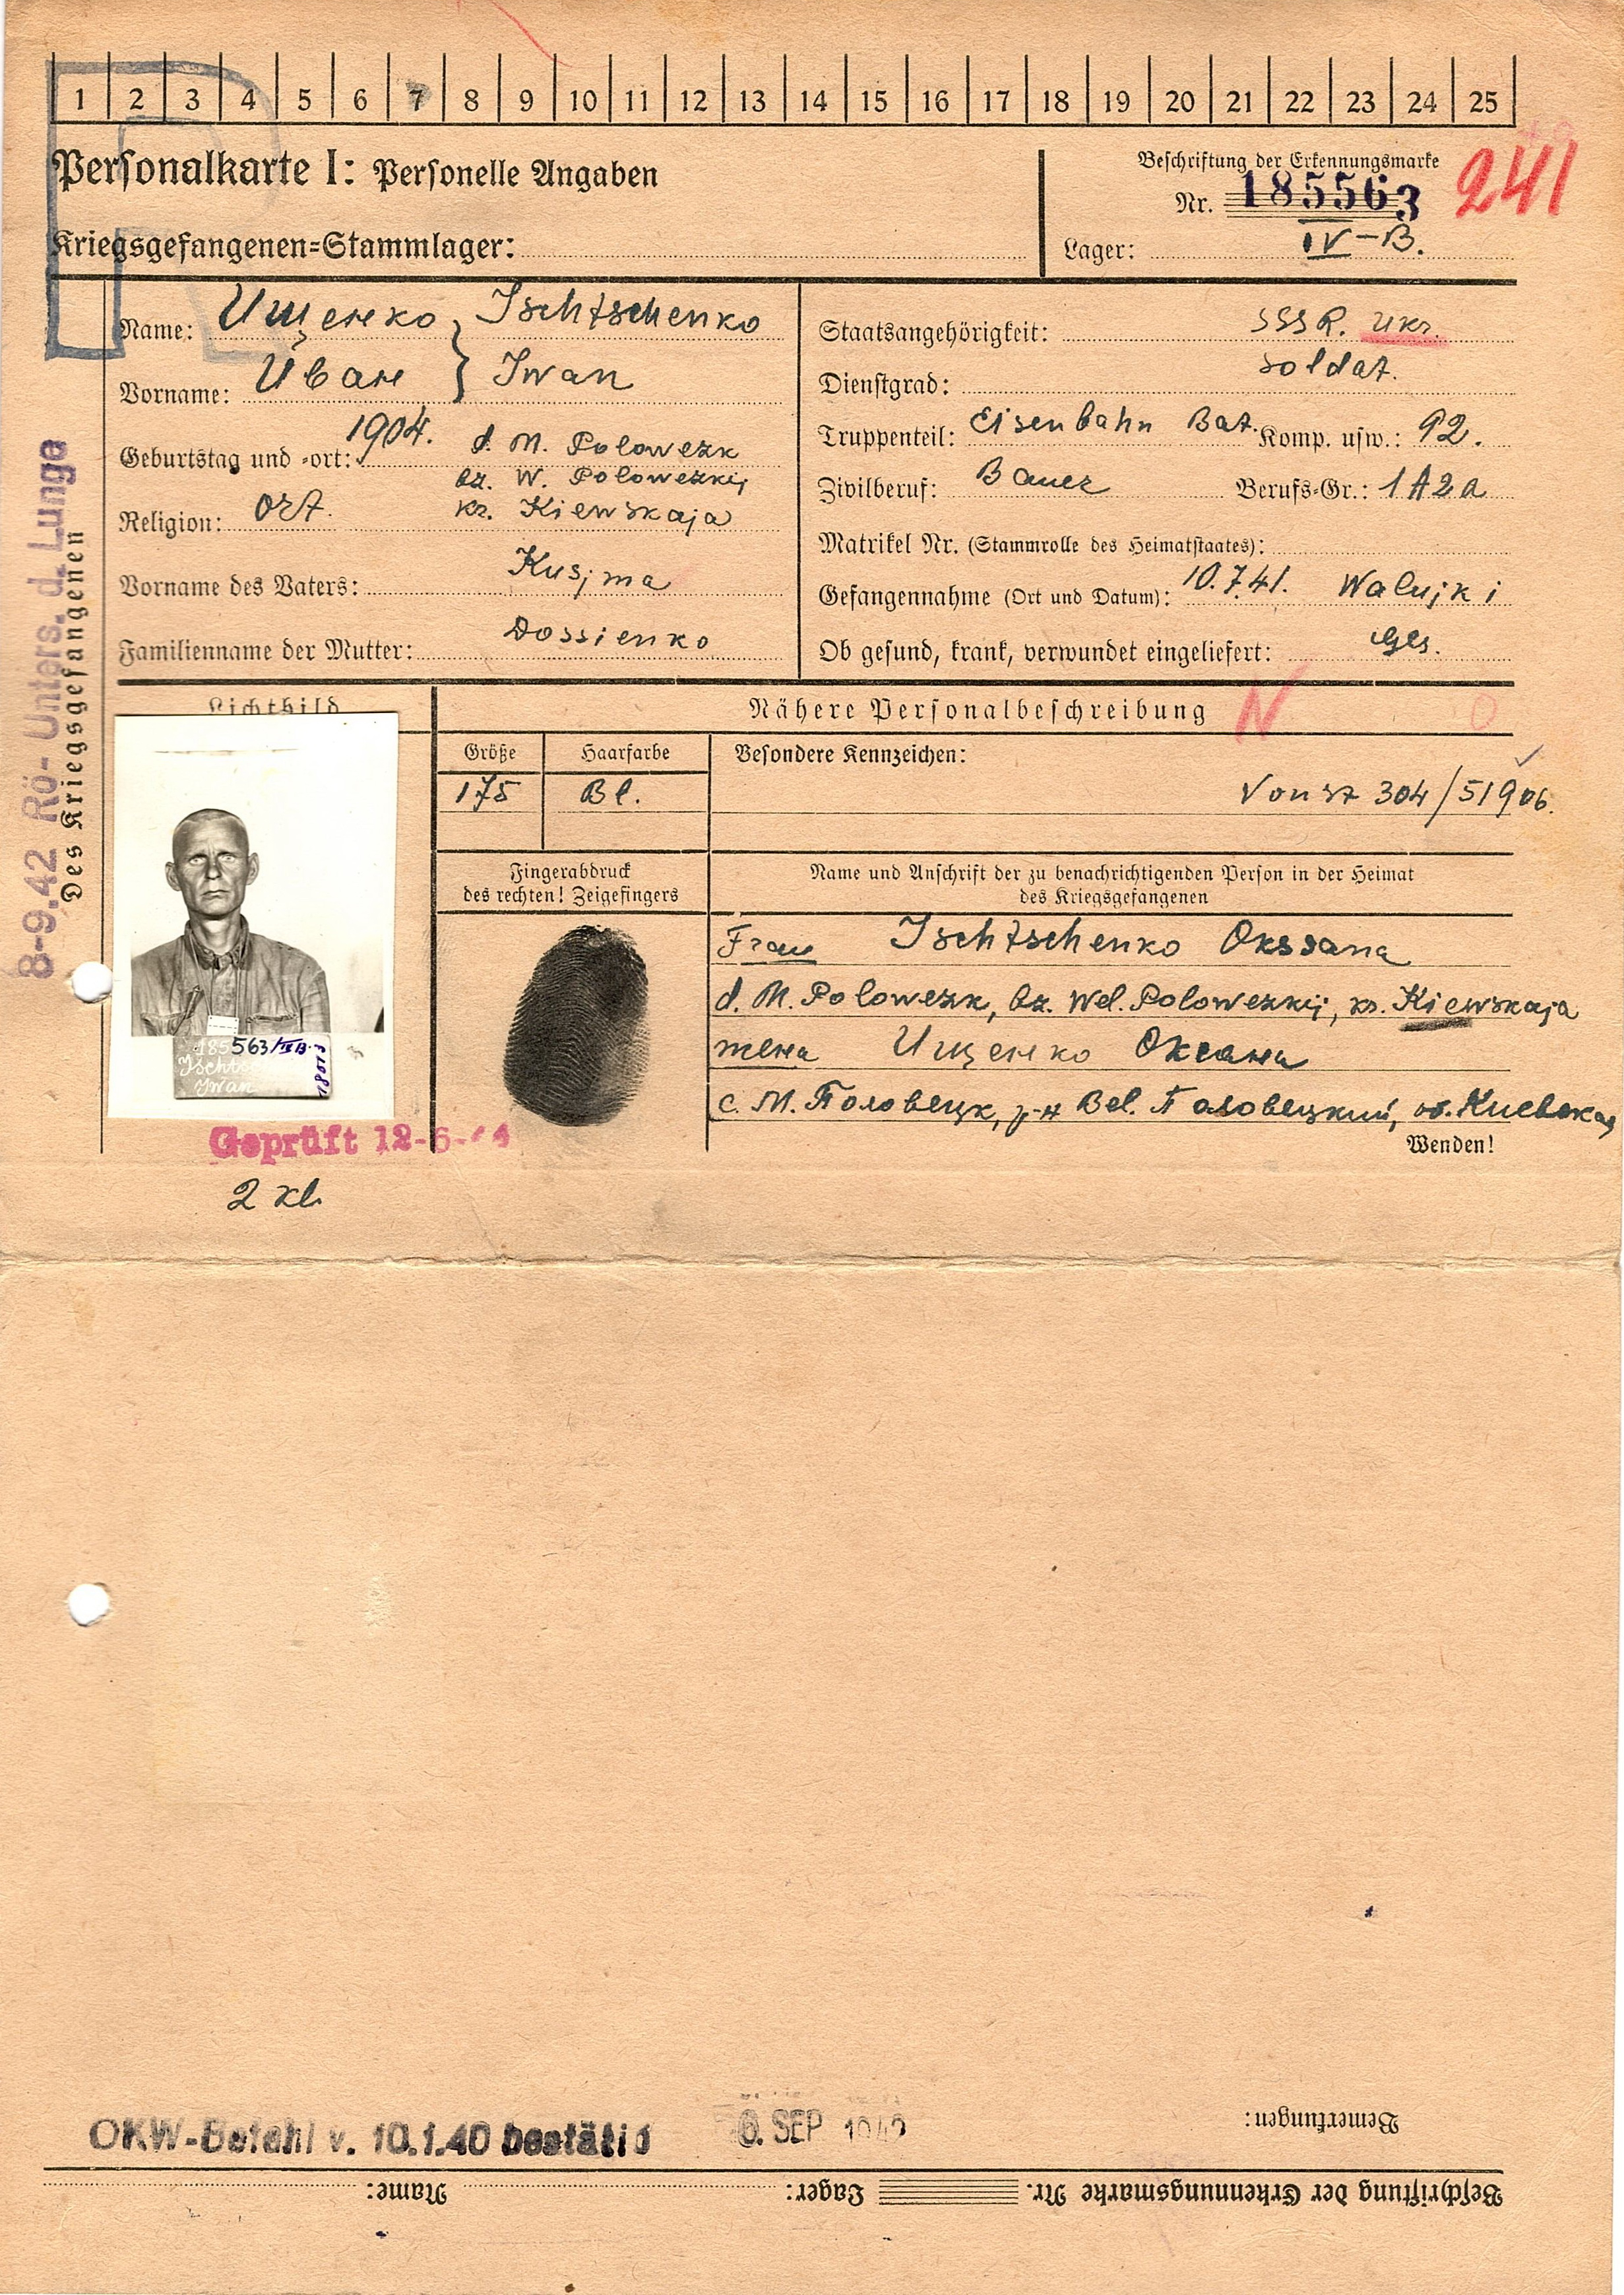 1 2 3 4 5 6 7 8 9 10 11 12 13 14 15 16 17 18 19 20 21 22 23 24 25
Personalkarte I: Personelle Angaben
Kriegsgefangenen=Stammlager:
Beschriftung der Erkennungsmarke
Nr. 185563
241
Lager: IV-B.
Name: Ищенко } Ischtschenko
Vorname: Иван } Iwan
Geburtstag und -ort: 1904. d. M. Polowezk
bz. W. Polowezkij
Religion: Ort. kr. Kiewskaja
Vorname des Vaters: Kusjma
Familienname der Mutter: Dossienko
Staatsangehörigkeit: SSSR. Ukr.
Dienstgrad: Soldat.
Truppenteil: Eisenbahn Bat. Komp. usw.: 92.
Zivilberuf: Bauer Berufs-Gr.: 1A2a
Matrikel Nr. (Stammrolle des Heimatstaates):
Gefangennahme (Ort und Datum): 10.7.41. Walujki
Ob gesund, krank, verwundet eingeliefert: Ges.
8-9.42 Rö-Unters. d. Lunge
Des Kriegsgefangenen
Lichtbild
Nähere Personalbeschreibung
N
Größe
Haarfarbe
Besondere Kennzeichen:
175
Bl.
Von St 304/51906.
Fingerabdruck
des rechten! Zeigefingers
Name und Anschrift der zu benachrichtigenden Person in der Heimat
des Kriegsgefangenen
Frau Ischtschenko Oksana
d. M. Polowezk, bz. Wel. Polowezkij, kr. Kiewskaja
жена Ищенко Оксана
с. М. Половецк, р-н Вел. Половецкий, об. Киевская
Wenden!
185563/IVB.
Iwan
Geprüft 12-6-44
2 kl.
OKW-Befehl v. 10.1.40 bestätig
6. SEP 1942
Bemerkungen:
Beschriftung der Erkennungsmarke Nr. Lager: Name: